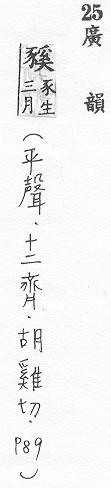 25廣韻
豯豕生三月(平聲.十二齊.胡雞切.P89)